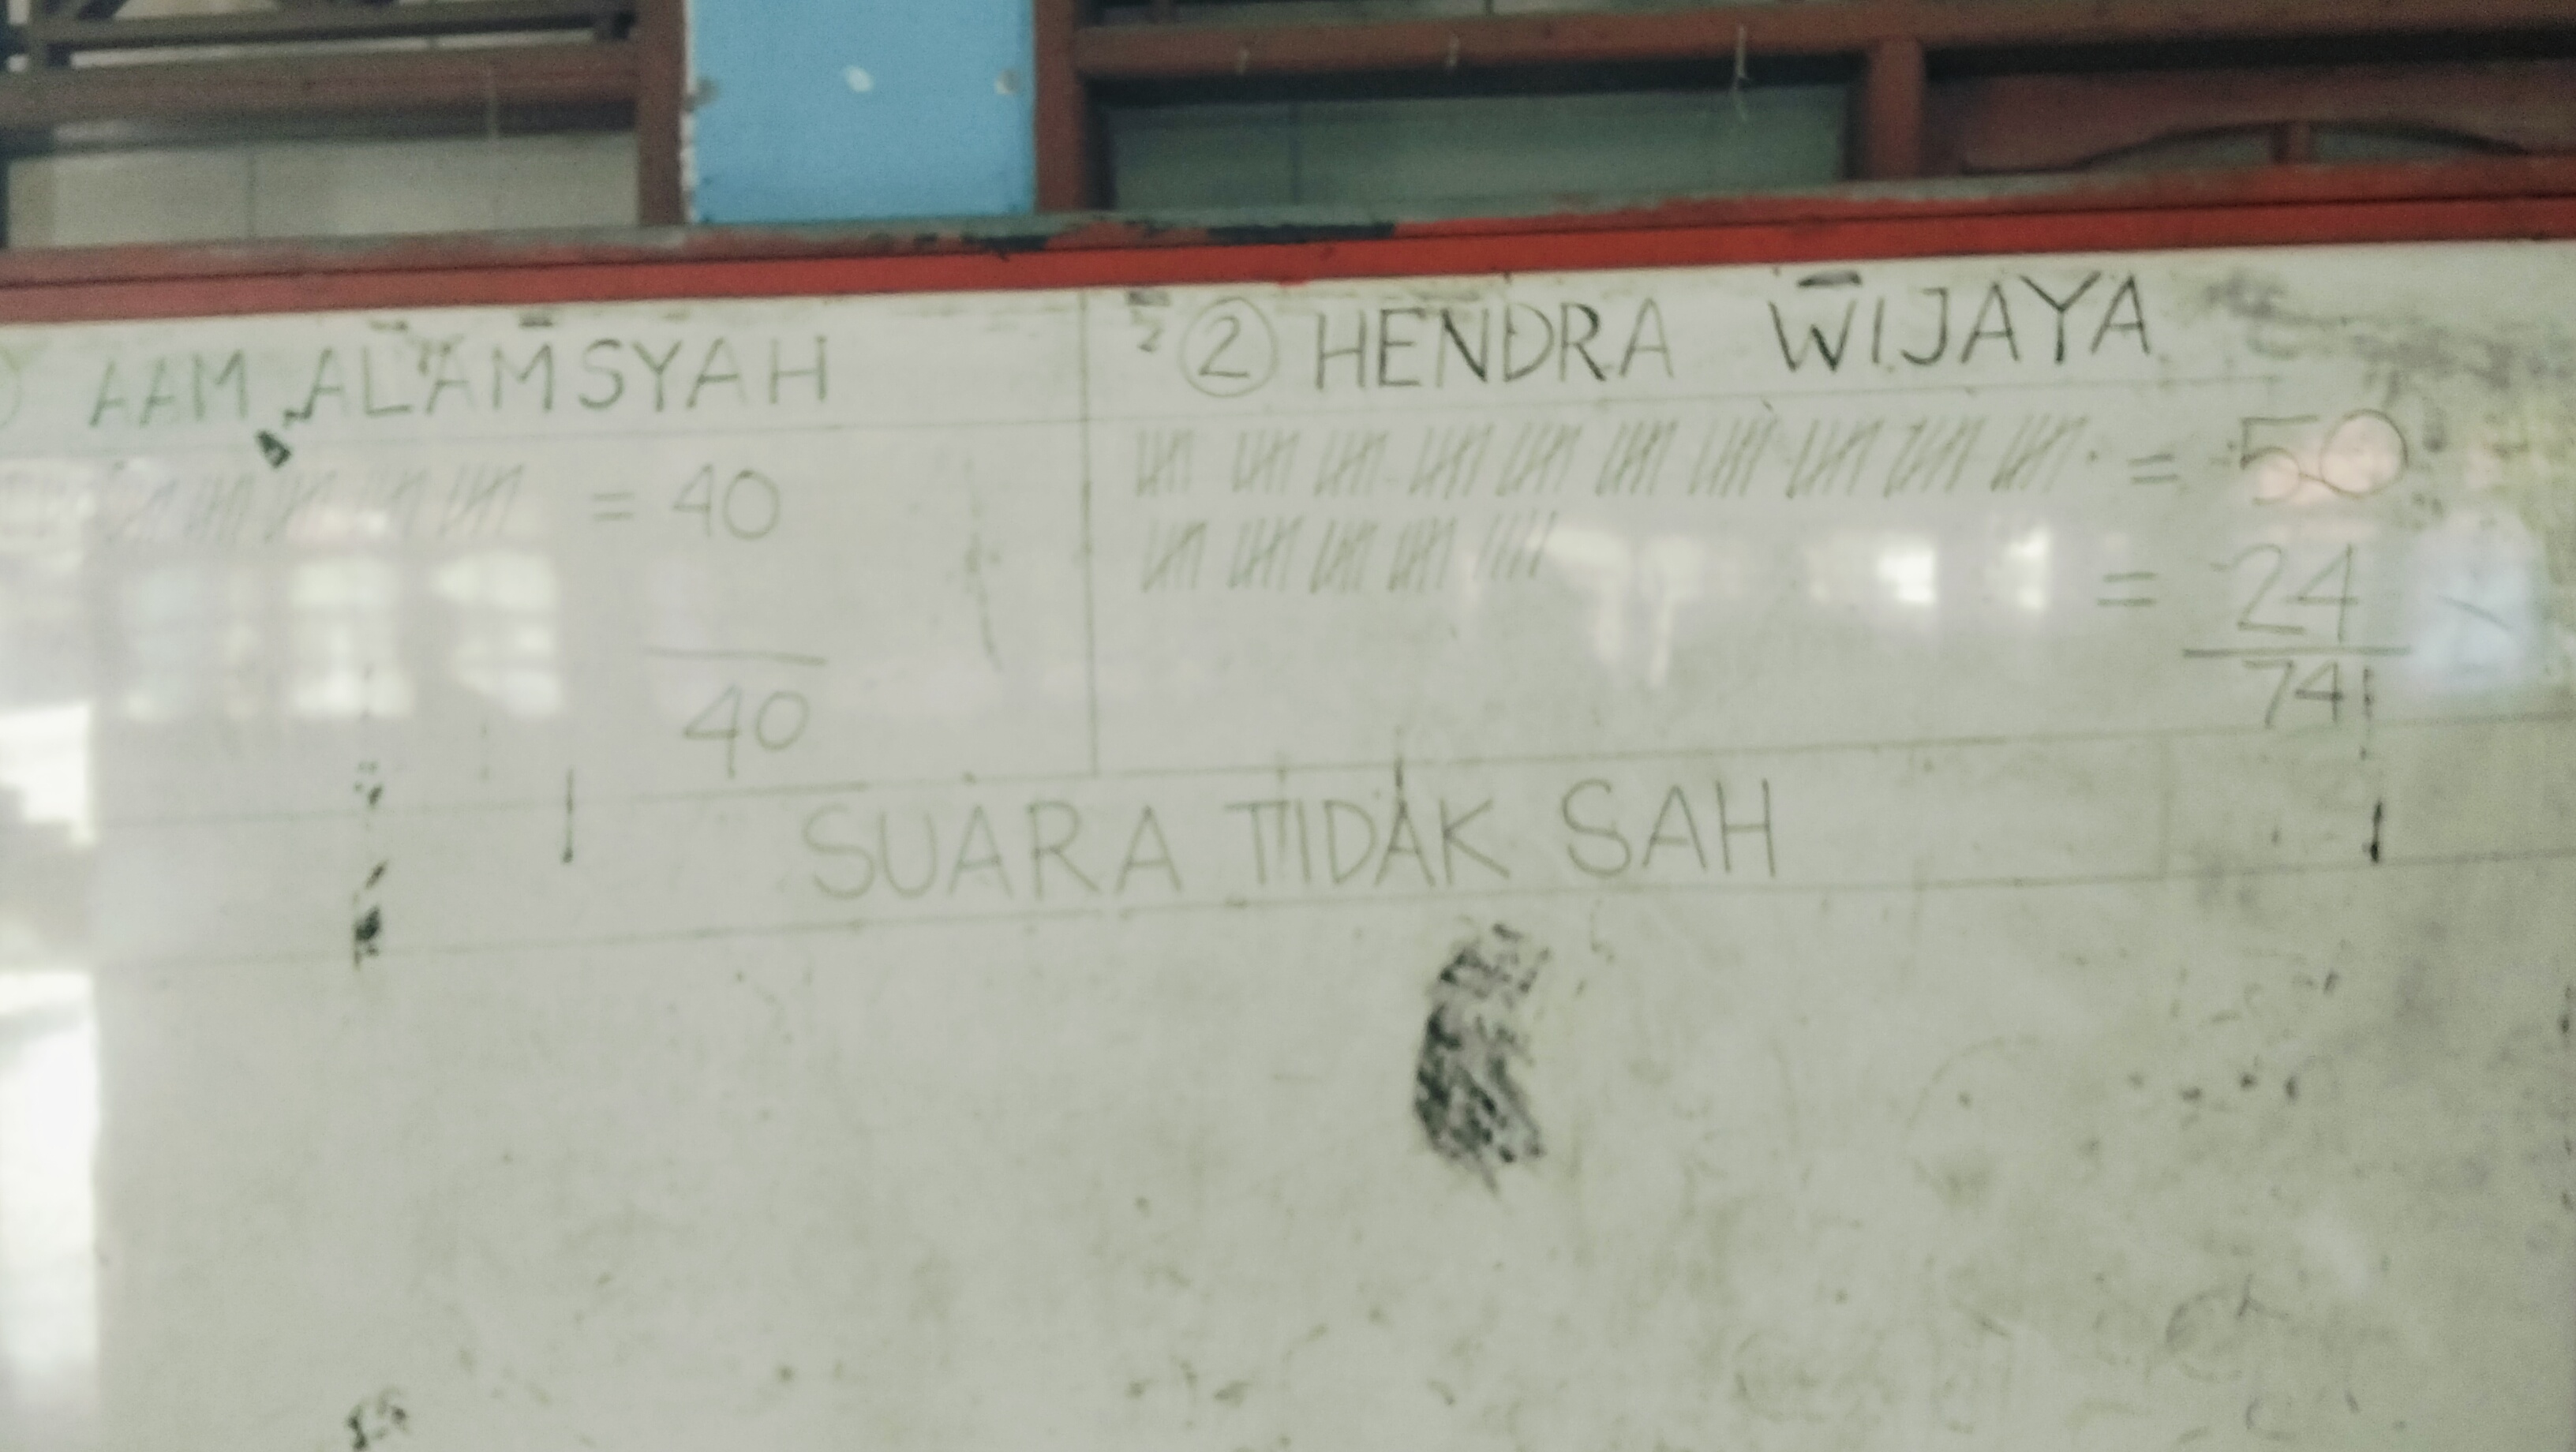 AAM ALAMSYAH
= 40
40
② HENDRA WIJAYA
= 50
= 24
74
SUARA TIDAK SAH